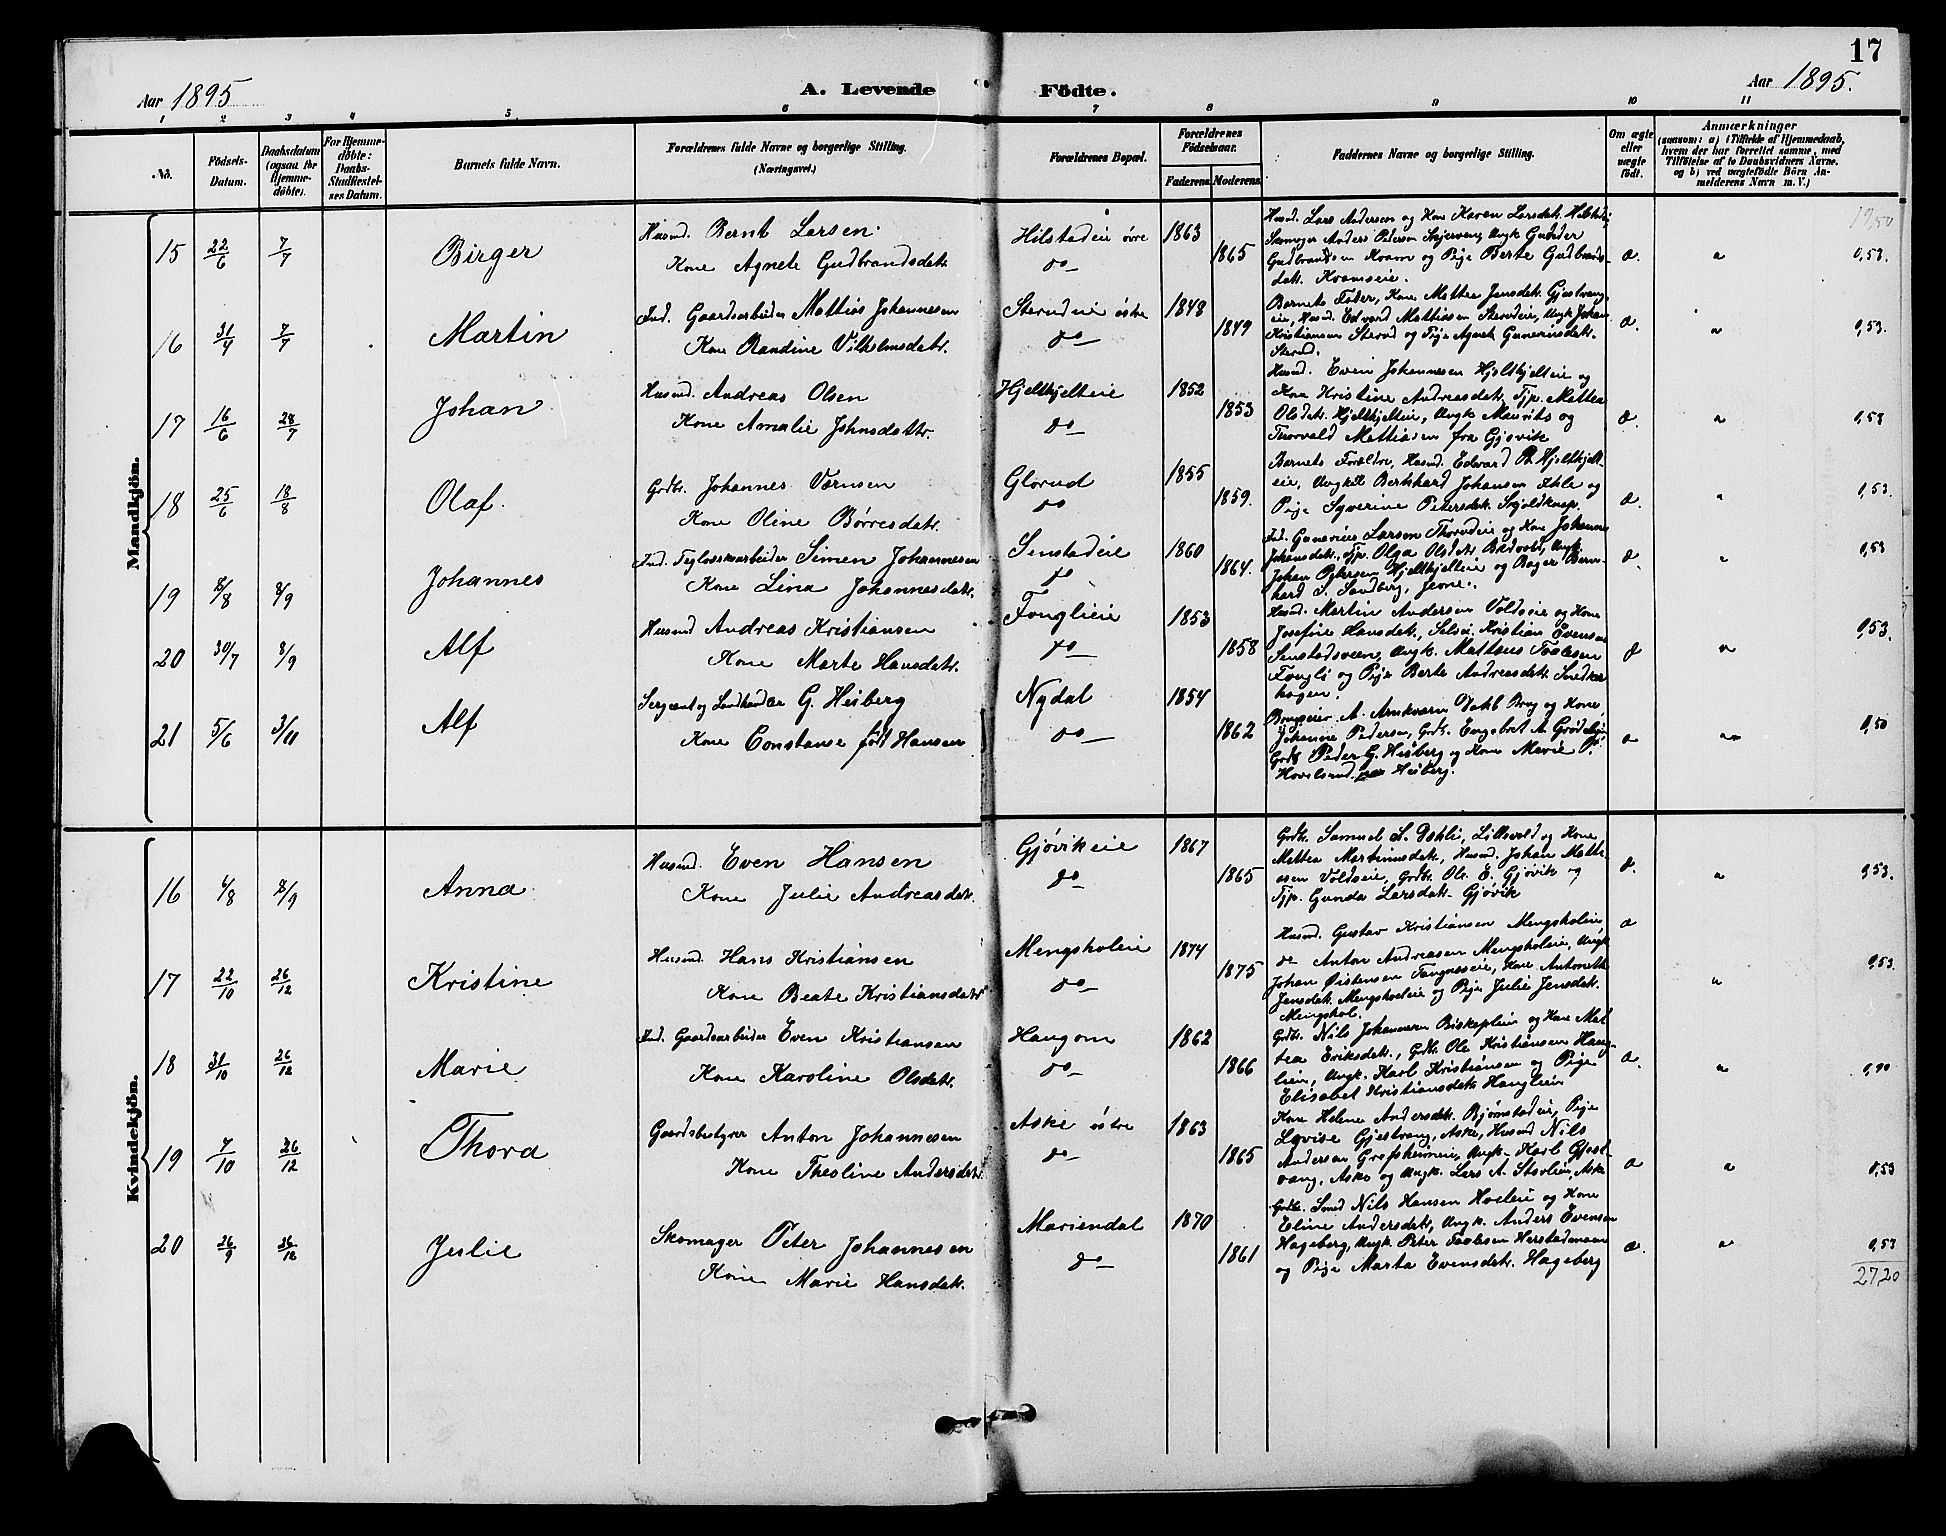 17
Aar 1895
A. Levende Födte.
Aar 1895.
1 2 3 4 5 6 7 8 9 10 11
No.
Födsels-
Datum.
Daabsdatum
(ogsaa for
Hjemme-
döbte).
For Hjemme-
döbte:
Daabs-
Stadfæstel-
ses Datum.
Barnets fulde Navn.
Forældrenes fulde Navne og borgerlige Stilling.
(Næringsvei.)
Forældrenes Bopæl.
Forældrenes
Födselsaar.
Faderens. Moderens.
Faddernes Navne og borgerlige Stilling.
Om ægte
eller
uægte
födt.
Anmærkninger
(saasom: a) i Tilfælde af Hjemmedaab,
hvem der har forrettet samme, med
Tilföielse af to Daabsvidners Navne,
og b) ved uægtefödte Börn An-
melderens Navn m. V.)
19,50
Mandkjön.
15 22/6 7/7 Birger
Husmd. Bernt Larsen.
Kone Agnete Gudbrandsdatr.
Hilstadeie övre
do
1863
1865
Husmd. Lars Andersen og Kone Karen Larsdatr. Hilstadeie,
Skomager Anders Pedersen Skjerven, Ungk. Gudder
Gudbrandsen Kram og Pige Berte Gudbrands-
datr. Kramseie.
æ. " 0,53.
16 31/4 7/7 Martin
Ind. Gaardsarbeider Mattias Johannesen
Kone Randine Vilhelmsdatr.
Sterudeie östre
do
1848
1849
Barnets Fader, Kone Mathea Jensdatr. Gjestvang-
eie, Husmd. Edvard Mathiasen Sterudeie, Ungk. Johan
Kristiansen Sterud og Pige Agnete Gunerinsdatr.
Sterud.
æ. " 0,53.
17 16/6 28/7 Johan
Husmd. Andreas Olsen
Kone Amalie Johnsdattr.
Hjeltkjelteie
do
1852
1853
Husmd. Even Johannesen Hjeltkjelteie og
Kone Kristine Andreasdatr. Tjp. Mattea
Olsdatr. Hjeltkjelteie, Ungk Maurits og
Thorvald Mattiasen fra Gjøvik
æ. " 0,53
18 25/6 18/8 Olaf.
Grdbr. Johannes Værnsen
Kone Oline Børresdatr.
Glorud
do
1855
1859.
Barnets Forældre, Husmd. Edvard R. Hjeltkjelt-
eie, Ungkl Berthard Johansen Ihle og
Pige Syverine Petersdatr. Skjoldknap.
æ. " 0,53.
19 8/8 8/9 Johannes
Ind. Teglværksarbeider Simen Johannesen
Kone Lina Johannesdatr.
Senstadeie
do
1860
1864.
Ind. Gunerius Larsen Thorudeie og Kone Johanne
Johansdatr., Tjp. Olga Olsdatr. Badvold, Ungk.
Johan Petersen Hjeltkjelteie og Bager Bern-
hard S. Sandberg, Jevne.
æ. " 0,53
20 30/7 8/9 Alf
Husmd Andreas Kristiansen
Kone Marte Hansdatr.
Fonglieie
do
1853
1858
Husmd. Martin Andersen Voldseie og Kone
Josefine Hansdatr., Selvei. Kristian Evensen
Senstadsveen, Ungk. Mattæus Paalesen
Fongli og Pige Berte Andreasdatr. Smedker-
hagen.
æ " 0,53.
21 5/6 3/11 Alf
Sergeant og Landhandler G. Heiberg
Kone Constanse född Hansen
Nydal
do
1854
1862
Brugseier A. Arnkværn Dahl Brug og Kone
Johanne Pedersen, Grdbr. Engebret A. Grødelien
Grdbr Peder G. Heiberg og Kone Marie P.
Hovelsrud Heiberg.
æ " 0,50
Kvindekjön.
16 4/8 8/9 Anna
Husmd. Even Hansen
Kone Julie Andreasdatr.
Gjövikeie
do
1867
1865
Grdbr. Samuel L. Dæhli, Lillevold og Kone
Mattea Martinusdatr., Husmd. Johan Matti-
asen Voldseie, Grdbr. Ole E. Gjøvik og
Tjp. Gunda Larsdatr. Gjøvik
æ. " 0,53.
17 22/10 26/12 Kristine
Husmd. Hans Kristiansen
Kone Beate Kristiansdatr
Mengsholeie
do
1874
1875
Husmd. Gustav Kristiansen Mengsholeie,
do Anton Andreasen Mengsholeie, Ungk
Johan Øistensen Fangneseie, Kone Antonette
Jensdatr. Mengsholeie og Pige Julie Jensdatr.
Mengshol.
æ " 0,53.
18 31/10 26/12 Marie
Ind. Gaardsarbeider Even Kristiansen
Kone Karoline Olsdatr.
Haugom
do
1862
1866
Grdbr. Nils Johannesen Biskoplien og Kone Mat-
tea Eriksdatr., Grdbr. Ole Kristiansen Haug-
lien, Ungk. Karl Kristiansen og Pige
Elisabet Kristiansdatr. Hauglien
æ. " 0,90
19 7/10 26/12 Thora
Gaardsbestyrer Anton Johannesen
Kone Theoline Andersdatr
Aske östre
do
1863
1865
Kone Helene Andersdatr. Bjørnstadeie, Pige
Lovise Gjestvang, Aske, Husmd Nils
Andersen Grefsheimeie, Ungk. Karl Gjest-
vang, Aske og Ungk. Lars A. Storlien, Aske
æ " 0,53
20 26/9 26/12 Julie
Skomager Peter Johannesen
Kone Marie Hansdatr.
Mariendal
do
1870
1861
Grdbr. Smed Nils Hansen Hveleie og Kone
Eline Andersdatr, Ungk. Anders Evensen
Hageberg, Ungk. Peter Paalesen Herstadmoen
og Pige Marta Evensdatr. Hageberg
æ. " 0,53
27,20